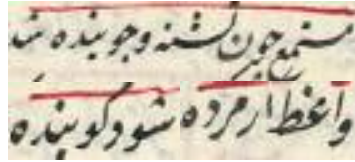 مستمع چون تشنه و جوینده شد
واعظ ار مرده شود گوینده